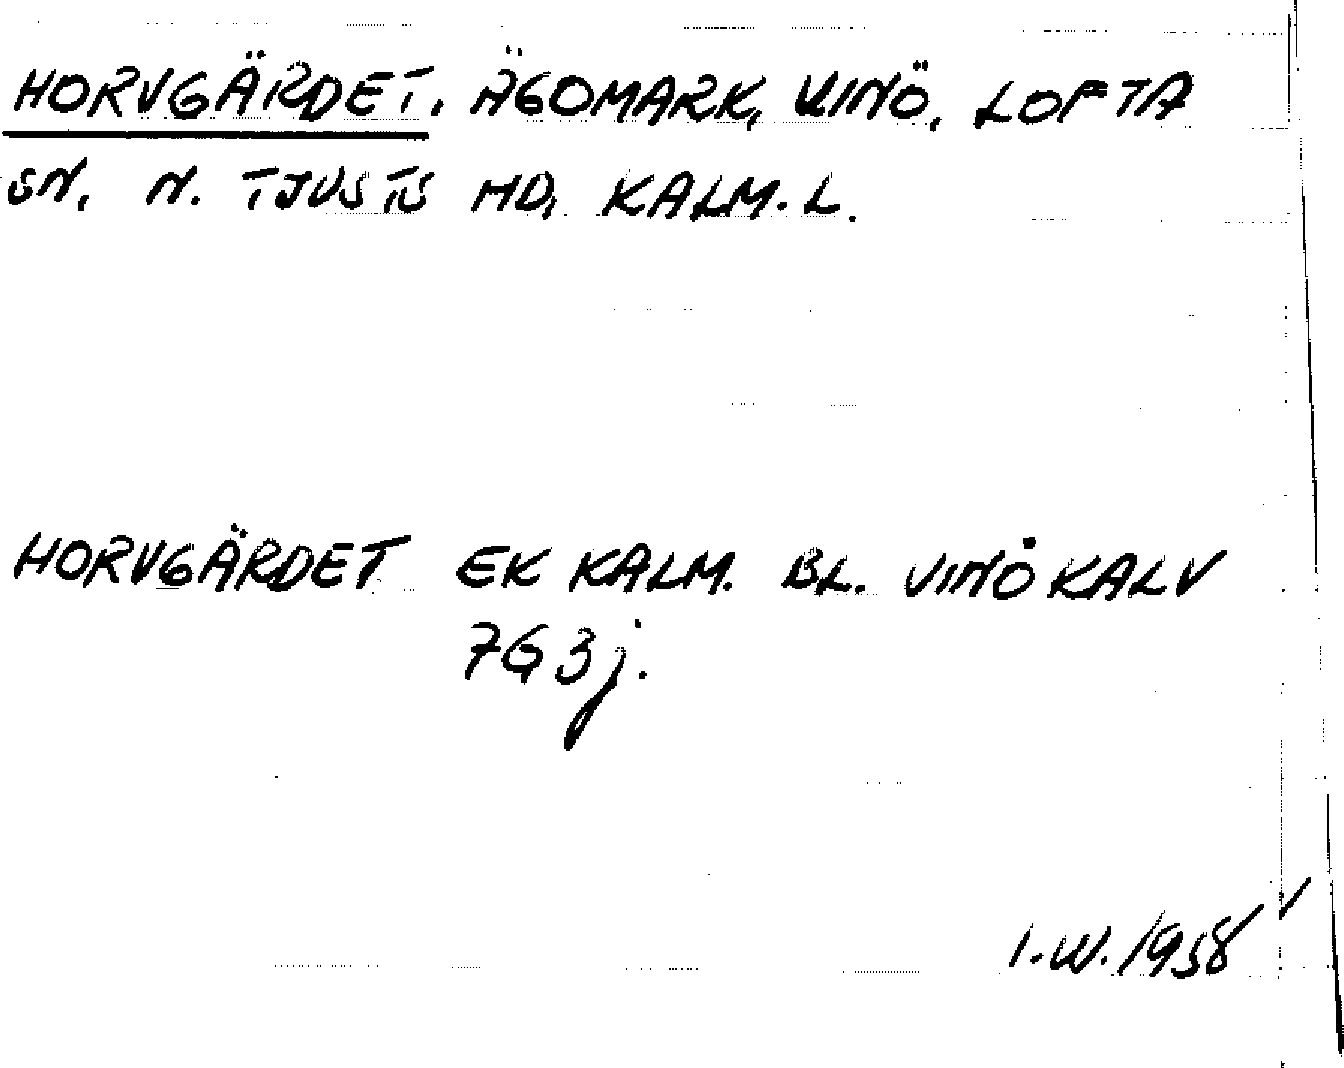 HORVGÄRDET. ÄGOMARK, VINÖ, LOFTA
SN, N. TJUSTS HD, KALM. L.
HORVGÄRDET EK KALM. BL. VINÖKALV
7G3j.
I.W. 1958